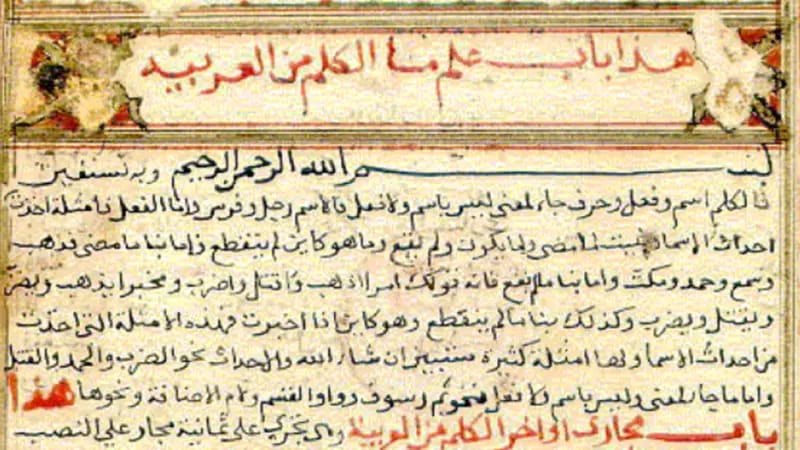 هذا باب علم ما الكلم من العربية
بسم الله الرحمن الرحيم وبه نستعين
فالكلم اسم وفعل وحرف جاء لمعنى ليس باسم ولا فعل فالاسم رجل وفرس واما الفعل فامثلة اخذت
احداث الاسما وبنيت لما مضى ولما يكون ولم يقع وما هو كاين لم ينقطع فاما بنا ما مضى فذهب
وسمع وحمد ومكث واما بنا ما لم يقع فانه قولك امرا اذهب واقتل واضرب ومخبرا يذهب ويضرب
ويقتل ويضرب وكذلك بنا ما لم ينقطع وهو كاين اذا اخبرت فهذه الامثلة التي اخذت
من احداث الاسما ولها امثلة كثيرة ستبين ان شاء الله والاحداث نحو الضرب والحمد والقتل
واما ما جا لمعنى وليس باسم ولا فعل فنحو ثم وسوف وواو القسم ولام الاضافة ونحوها هذا
باب مجاري اواخر الكلم من العربية وهي تجري على ثمانية مجار على النصب